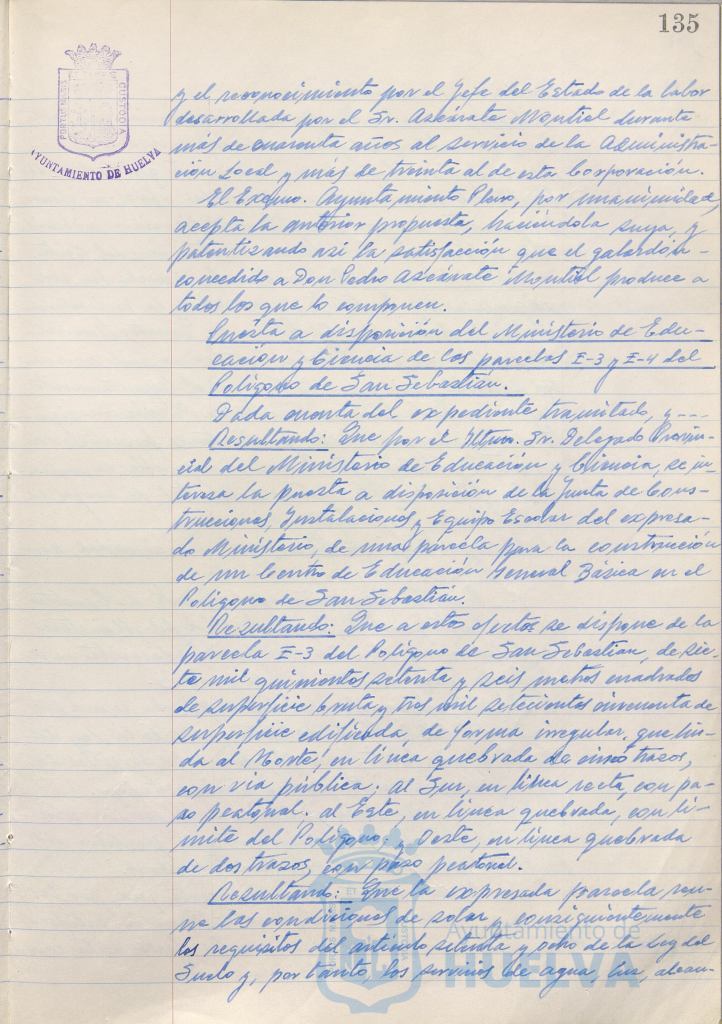 135
PORTUS MARIS ET TERRAE CUSTODIA
AYUNTAMIENTO DE HUELVA
y el reconocimiento por el Jefe del Estado de la labor
desarrollada por el Sr. Azcárate Montiel durante
más de cuarenta años al servicio de la Administra-
ción Local y más de treinta al de esta Corporación.
El Excmo. Ayuntamiento Pleno, por unanimidad,
acepta la anterior propuesta, haciéndola suya, y
patentizando así la satisfacción que el galardón
concedido a Don Pedro Azcárate Montiel produce a
todos los que lo componen.
Puesta a disposición del Ministerio de Edu-
cación y Ciencia de las parcelas E-3 y E-4 del
Polígono de San Sebastián.
Dada cuenta del expediente tramitado, y ---
Resultando: Que por el Iltmo. Sr. Delegado Provin-
cial del Ministerio de Educación y Ciencia, se in-
teresa la puesta a disposición de la Junta de Cons-
trucciones, Instalaciones y Equipo Escolar del expresa-
do Ministerio, de una parcela para la construcción
de un Centro de Educación General Básica en el
Polígono de San Sebastián.
Resultando: Que a estos efectos se dispone de la
parcela E-3 del Polígono de San Sebastián, de sie-
te mil quinientos setenta y seis metros cuadrados
de superficie bruta y tres mil setecientos cincuenta de
superficie edificada, de forma irregular, que lin-
da al Norte, en línea quebrada de cinco trazos,
con vía pública; al Sur, en línea recta, con pa-
so peatonal. al Este, en línea quebrada, con lí-
mite del Polígono; y Oeste, en línea quebrada
de dos trazos, con paso peatonal.
Resultando: Que la expresada parcela reu-
ne las condiciones de solar y consiguientemente
los requisitos del artículo setenta y ocho de la Ley del
Suelo y, por tanto, los servicios de agua, luz, alcan-
Ayuntamiento de
HUELVA